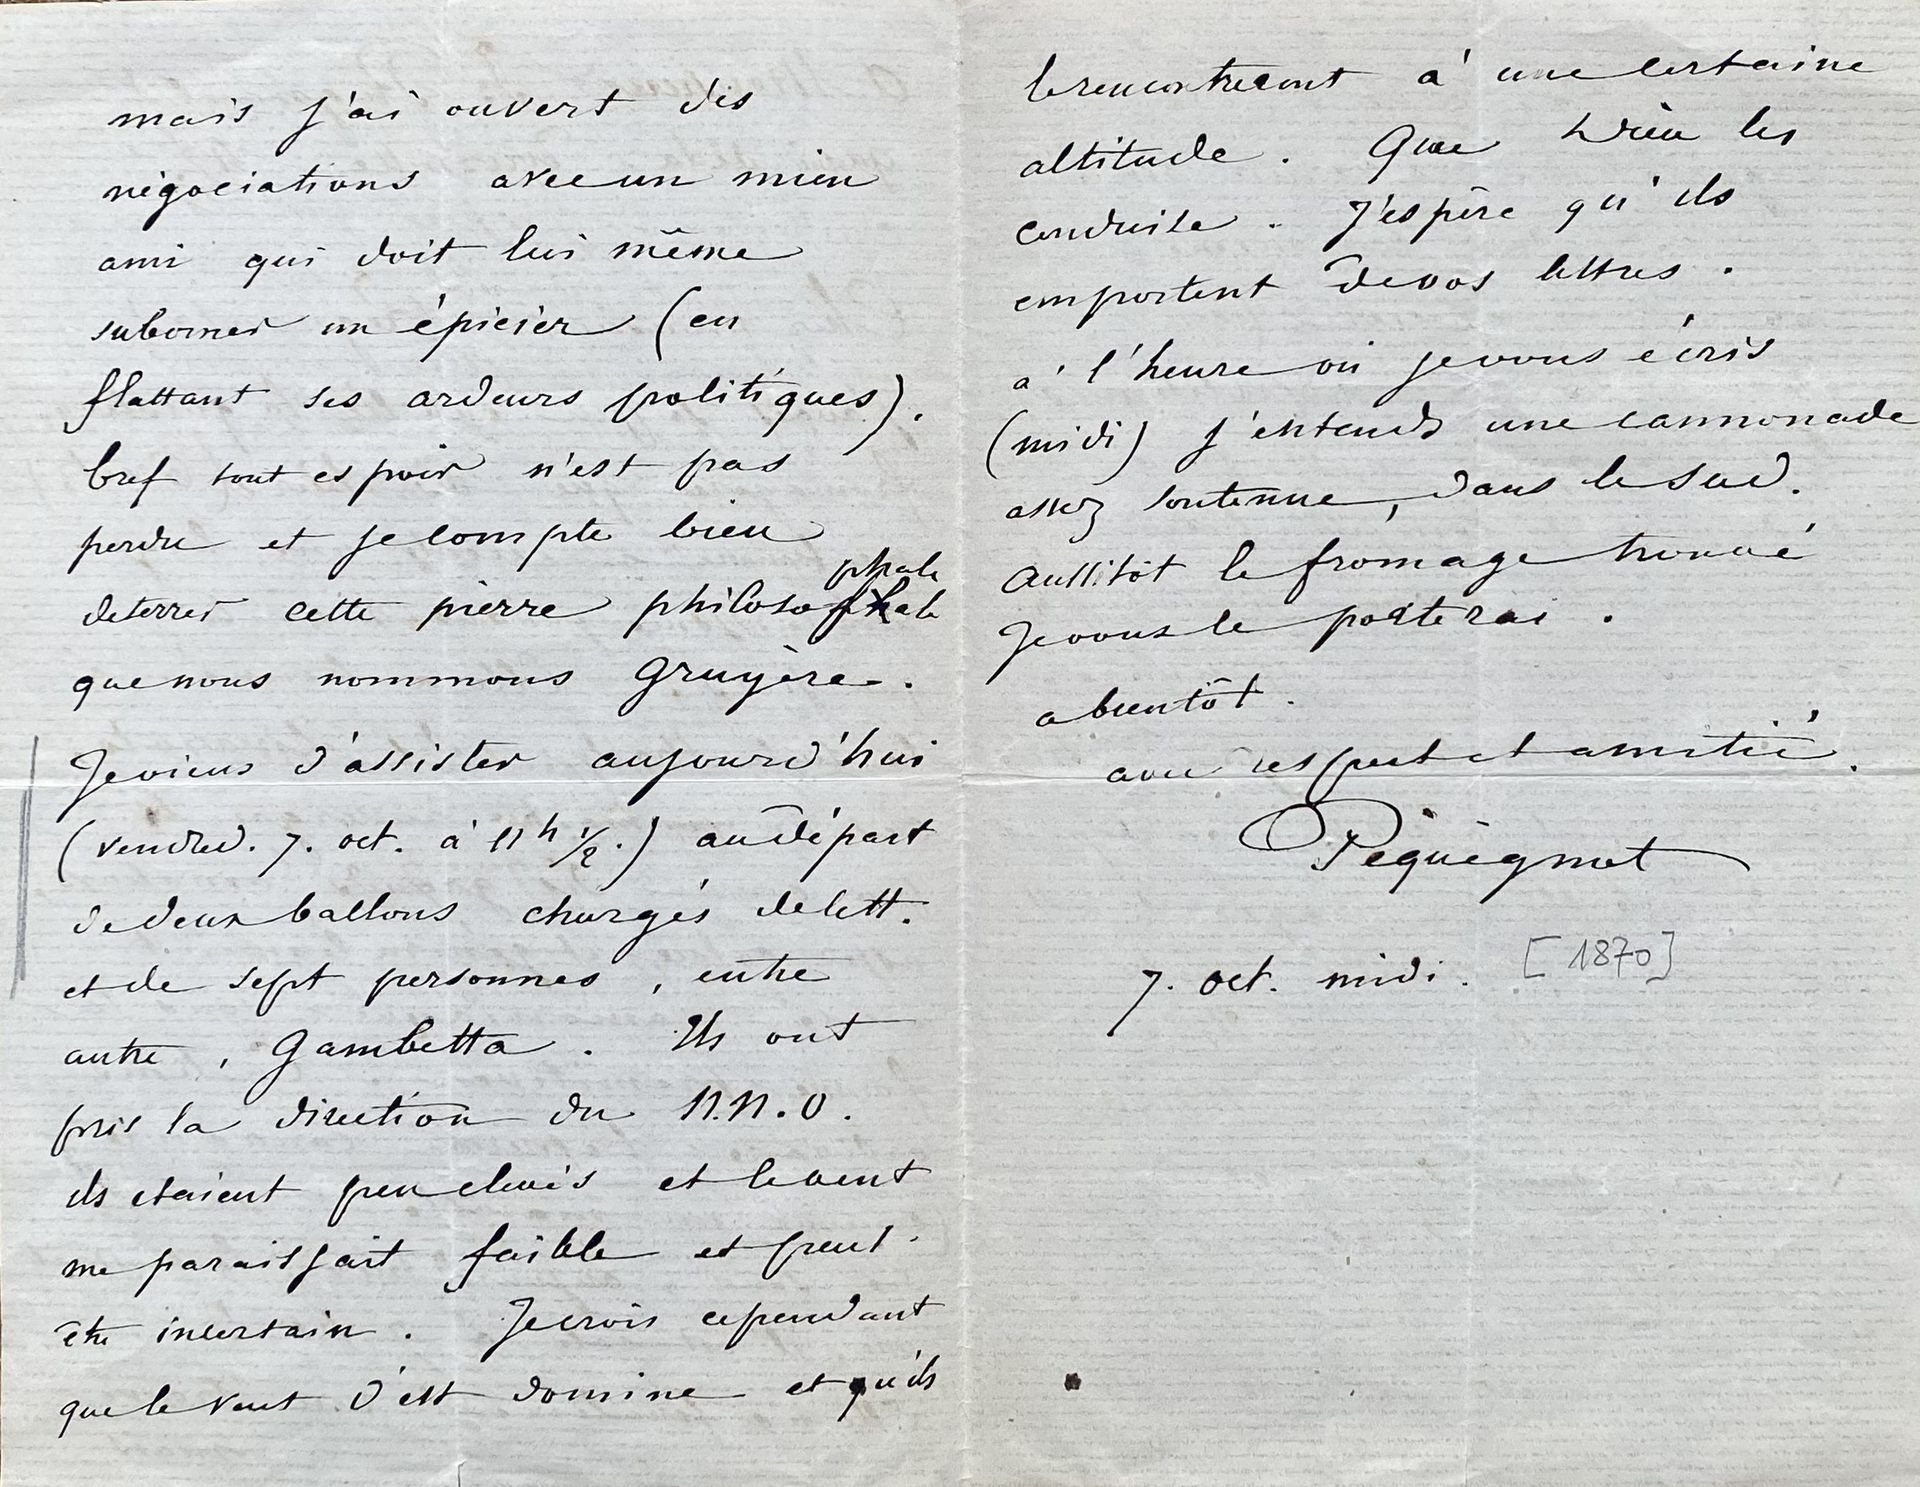 mais j'ai ouvert des
négociations avec un mien
ami qui doit lui même
suborner un épicier (en
flattant ses ardeurs politiques).
bref tout espoir n'est pas
perdu et je compte bien
phale
deterrer cette pierre philosophale
que nous nommons Gruyère.
Je viens d'assister aujourd'hui
(vendred. 7. oct. à 11h 1/2.) au départ
de deux ballons chargés de lett.
et de sept personnes, entre
autre, Gambetta. Ils ont
pris la direction du N.N.O.
ils etaient peu elevés et le vent
me paraissait faible et peut-
être incertain. Je crois cependant
que le vent d'est domine et qu'ils
le rencontreront à une certaine
altitude. Que Dieu les
conduise. J'espère qu'ils
emportent de vos lettres.
à l'heure où je vous écris
(midi) j'entends une cannonade
assez soutenue, dans le sud.
Aussitôt le fromage trouvé
Je vous le porterai.
a bientôt.
avec respect et amitié.
Péquégnot
7. oct. midi. [1870]